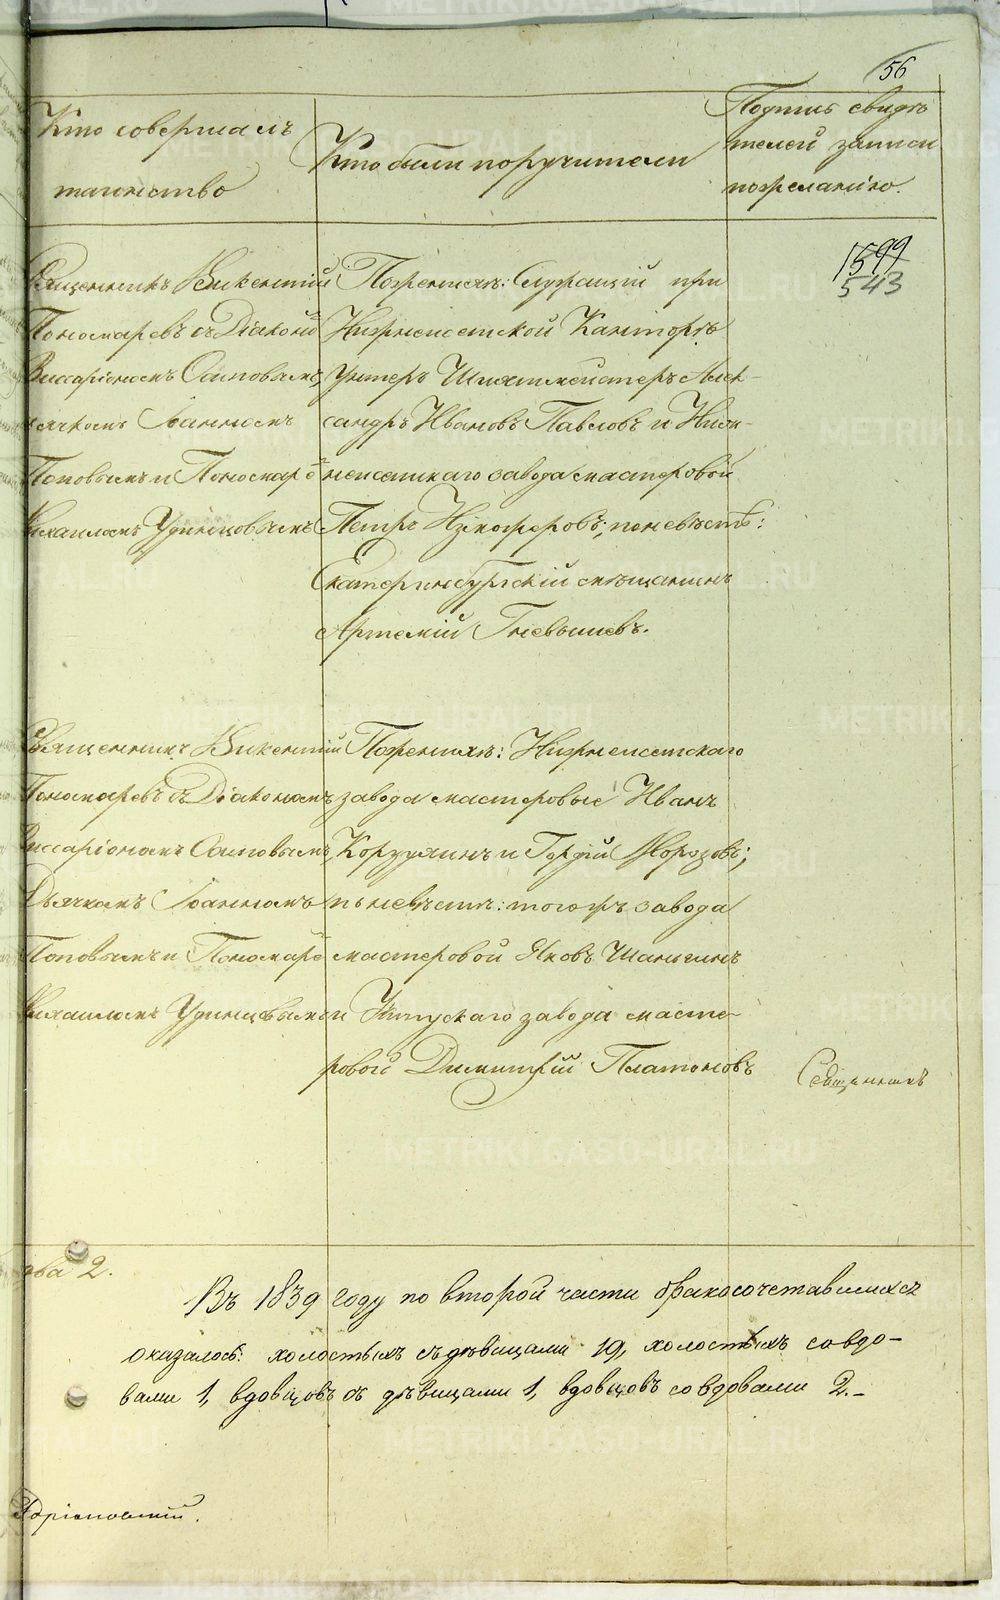 56
Кто совершалъ
таинство
Кто были поручители
Подпись свидѣ
телей записи
по желанію.
1599
543
Священникъ Викентій
Пономаревъ съ Діакон
Виссаріономъ Осиповымъ,
Дьячкомъ Іоанномъ
Поповымъ и Пономаре
Михаиломъ Удинцовымъ
По женихѣ: Служащій при
Нижнеисетской Канторѣ
Унтеръ Шихтмейстеръ Алек-
сандръ Ивановъ Павловъ и Ниж-
неисетскаго завода мастеровой
Петръ Никифоровъ; по невѣстѣ:
Екатеринбургскій мѣщанинъ
Артемій Гневышевъ.
Священникъ Викентій
Пономаревъ съ Діакономъ
Виссаріономъ Осиповымъ,
Дьячкомъ Іоанномъ
Поповымъ и Пономаре
Михаиломъ Удинцовымъ
По женихѣ: Нижнеисетскаго
завода мастеровые Иванъ
и Гордій Морозовъ;
по невѣстѣ: тогожъ завода
мастеровой Яковъ Шаньгинъ
и Уктускаго завода масте-
ровой Димитрій Платоновъ
Священникъ
2.
Въ 1839 году по второй части бракосочетавшихся
оказалось: холостыхъ съ дѣвицами 19, холостыхъ со вдо-
вами 1, вдовцовъ съ дѣвицами 1, вдовцовъ со вдовами 2.-
METRIKI.GASO-URAL.RU